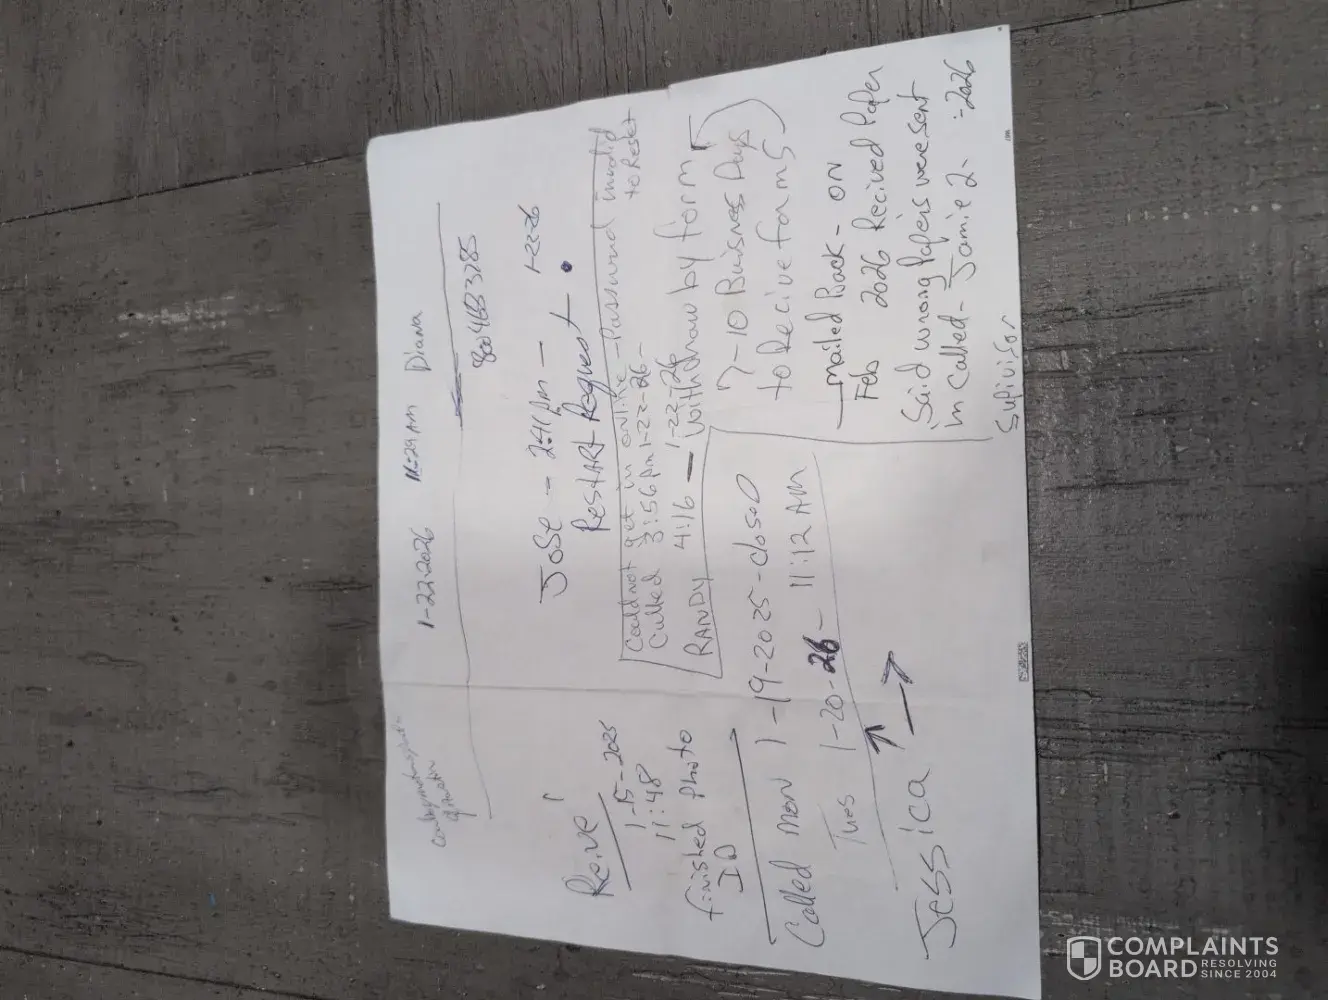 1-22-2026 11:29 AM Diana
8004883285
Jose - 2:41 pm - 1-22-26
Restart Request
Could not get in online - Password invalid
to Reset
Called 3:56 pm 1-22-26 -
RANDY 4:16 - 1-22-26
Withdraw by form
7-10 Buisnes Days
to Recive forms
1-15-2025
11:48
finished Photo
ID
Called mon 1-19-2025 - closed
Tues 1-20-26 - 11:12 AM
Jessica
mailed Back - on
Feb 2026 Recived Paper
Said wrong Papers were sent
in called - Jamie 2- -2026
Supivisor
COMPLAINTS
BOARD RESOLVING
SINCE 2004